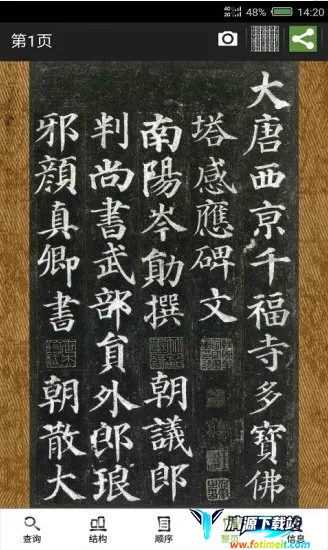 48% 14:20
第1页
大唐西京千福寺多寶佛
塔感應碑文
南陽岑勛撰 朝議郎
判尚書武部員外郎琅
邪顏真卿書 朝散大
查询
结构
顺序
整页
信息
源下载站
www.fotimeit.com